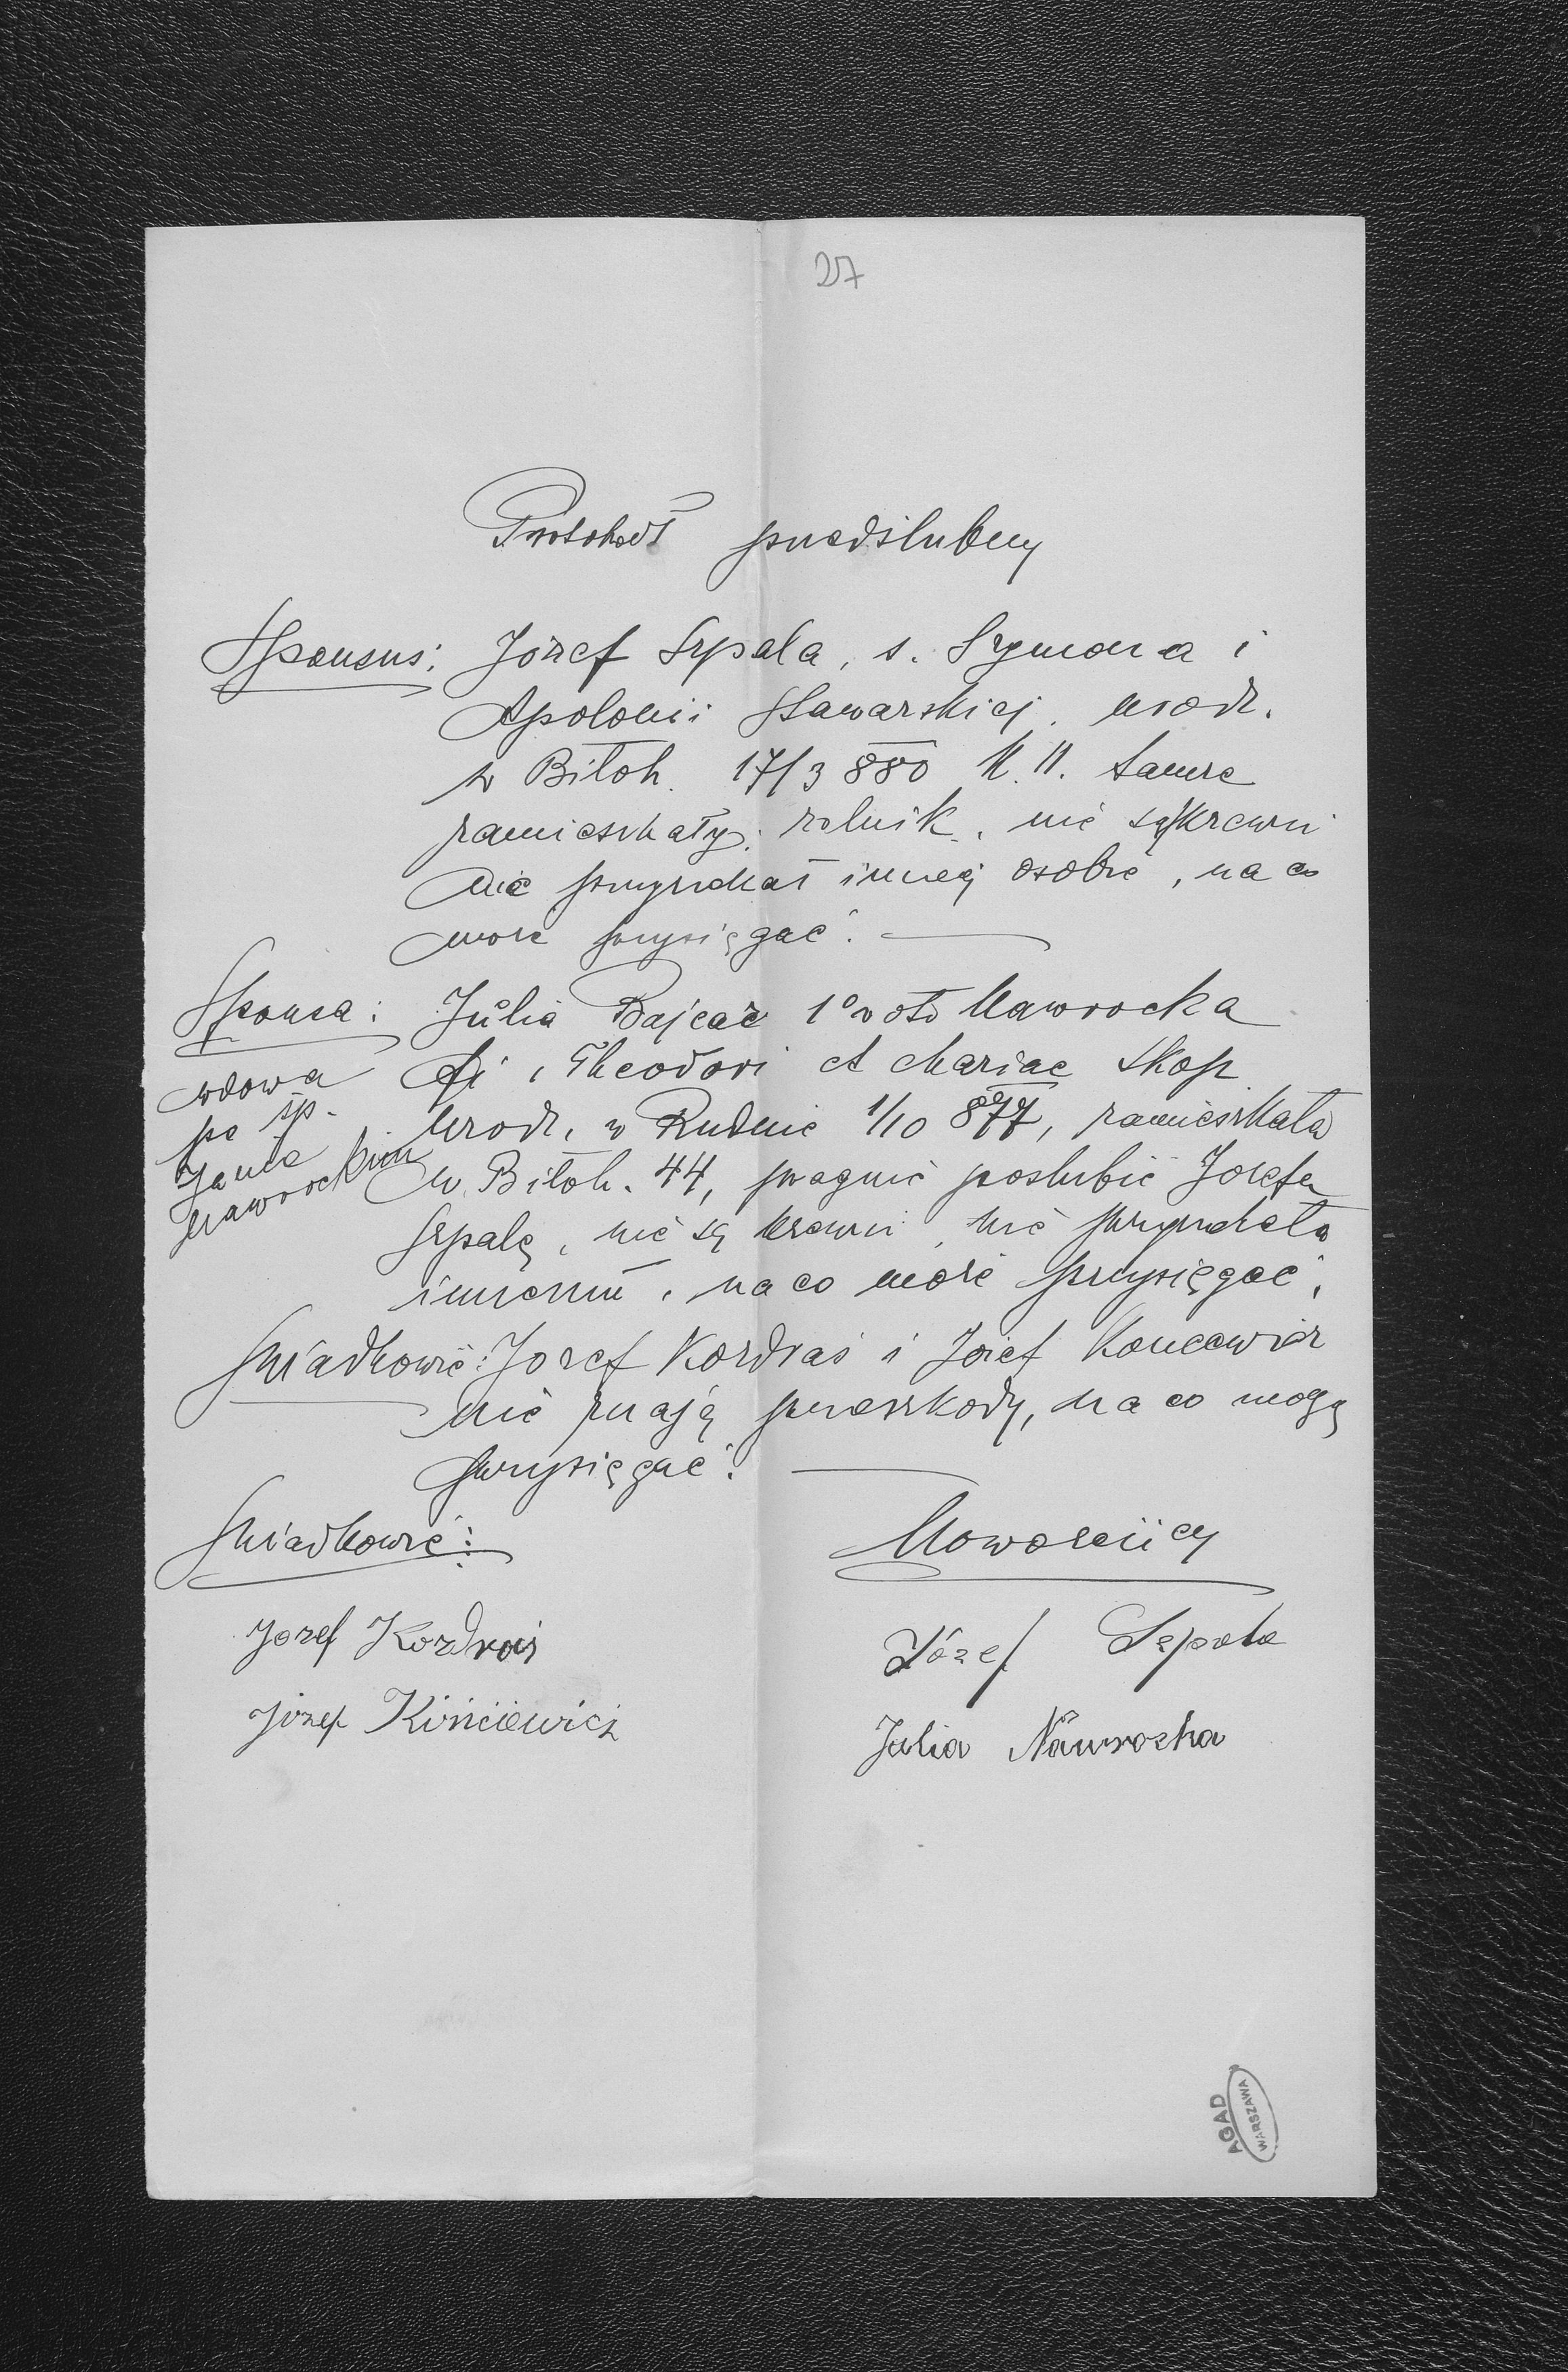 27
Protokół przedślubny
Sponsus: Józef Szpala, s. Szymona i
Apolonii Sławarskiej, urodz.
w Biłoh. 17/3 880 N. 11. tamże
zamieszkały, rolnik, nie są krewni
nie przyrzekał innej osobie, na co
może przysięgać.
Sponsa: Julia Bajcar 1º voto Nawrocka
fi, Theodori et Mariae Skop
urodz. w Rudnie 1/10 877, zamieszkała
w Biłoh. 44, pragnie poślubić Józefa
Szpalę, nie są krewni, nie przyrzekała
innemu, na co może przysięgać.
wdowa
po śp.
Janie
Nawrockim
Świadkowie: Jozef Kozdraś i Józef
nie znają przeszkody, na co mogą
przysięgać.
Świadkowie:
Jozef Kozdraś
Józef
Nowożeńcy
Józef Szpala
Julia Nawrocka
AGAD
WARSZAWA